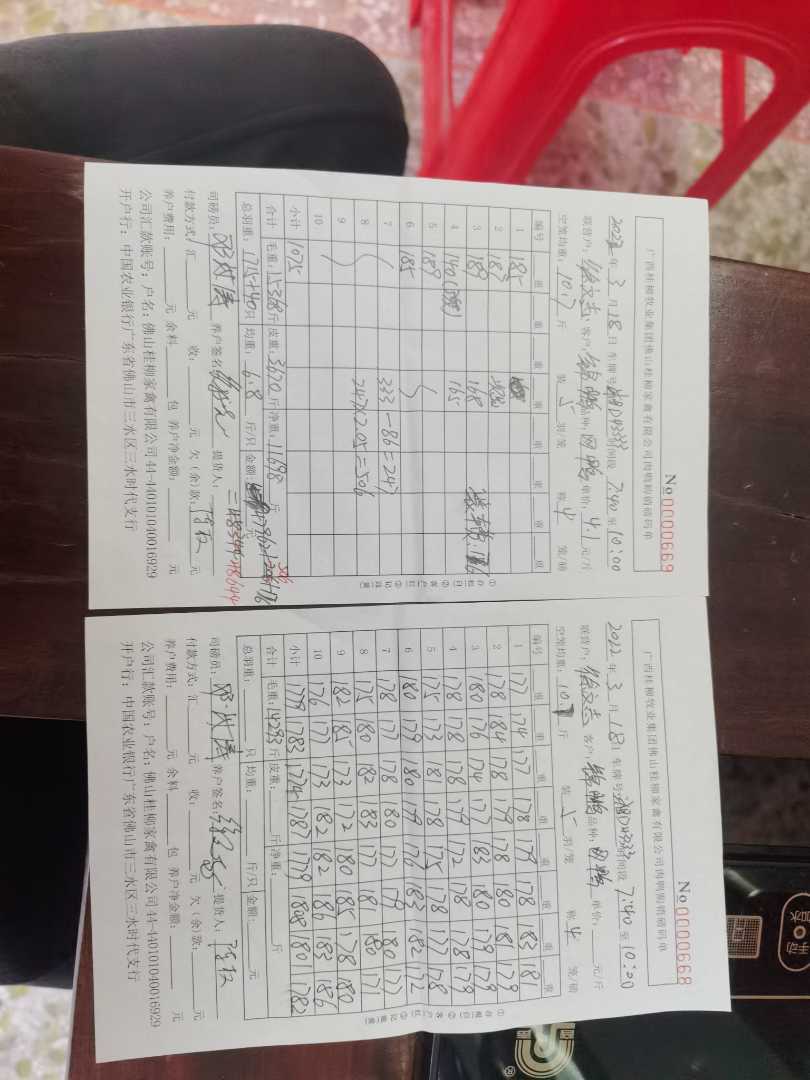 广西桂柳牧业集团佛山桂柳家禽有限公司肉鸭购销磅码单
№0000669
2022年3月18日 车牌号 湘D43333 时间段 7:40至10:00
联营户: 徐文志 客户: 品种: 单价: 4.1元/斤
空笼均重: 10.7斤 装5羽/笼 称4笼/磅
编号 重 重 重 重 重 重 重 重
1 185
2 183
3 189 168
4 140(3笼) 165
5 189
6 185
7 333-86=247
8 247×2.05=506
9
10
小计 1075
合计 毛重: 15368斤 皮重: 3670斤 净重: 11698斤
总羽重: 1715+40只 均重: 6.8斤/只 金额: 元
506
司磅员: 养户签名: 提货人:
付款方式: 汇 元 收: 元 欠(余)款: 元
养户费用: 元 余料 包 养户净金额: 元
公司汇款账号: 户名: 佛山桂柳家禽有限公司 44-440101040016929
开户行: 中国农业银行广东省佛山市三水区三水时代支行
广西桂柳牧业集团佛山桂柳家禽有限公司肉鸭购销磅码单
№0000668
2022年3月18日 车牌号 湘D43333 时间段 7:40至10:00
联营户: 徐文志 客户: 品种: 单价: 元/斤
空笼均重: 10.7斤 装5羽/笼 称4笼/磅
编号 重 重 重 重 重 重 重 重
1 177 174 177 178 179 178 183 181
2 178 184 178 179 178 180 181 179
3 180 176 174 177 183 180 179 179
4 178 178 178 179 172 178 178 179
5 175 173 181 178 175 178 177 178
6 180 179 180 179 176 183 182 172
7 178 177 178 180 177 179 180 177
8 175 180 182 183 177 181 180 171
9 182 185 173 172 180 185 178 180
10 176 177 173 182 182 186 183 186
小计 1779 1783 1774 1787 1779 1808 1801 1782
合计 毛重: 14293斤 皮重: 斤 净重: 斤
总羽重: 只 均重: 斤/只 金额: 元
司磅员: 养户签名: 提货人:
付款方式: 汇 元 收: 元 欠(余)款: 元
养户费用: 元 余料 包 养户净金额: 元
公司汇款账号: 户名: 佛山桂柳家禽有限公司 44-440101040016929
开户行: 中国农业银行广东省佛山市三水区三水时代支行
手动